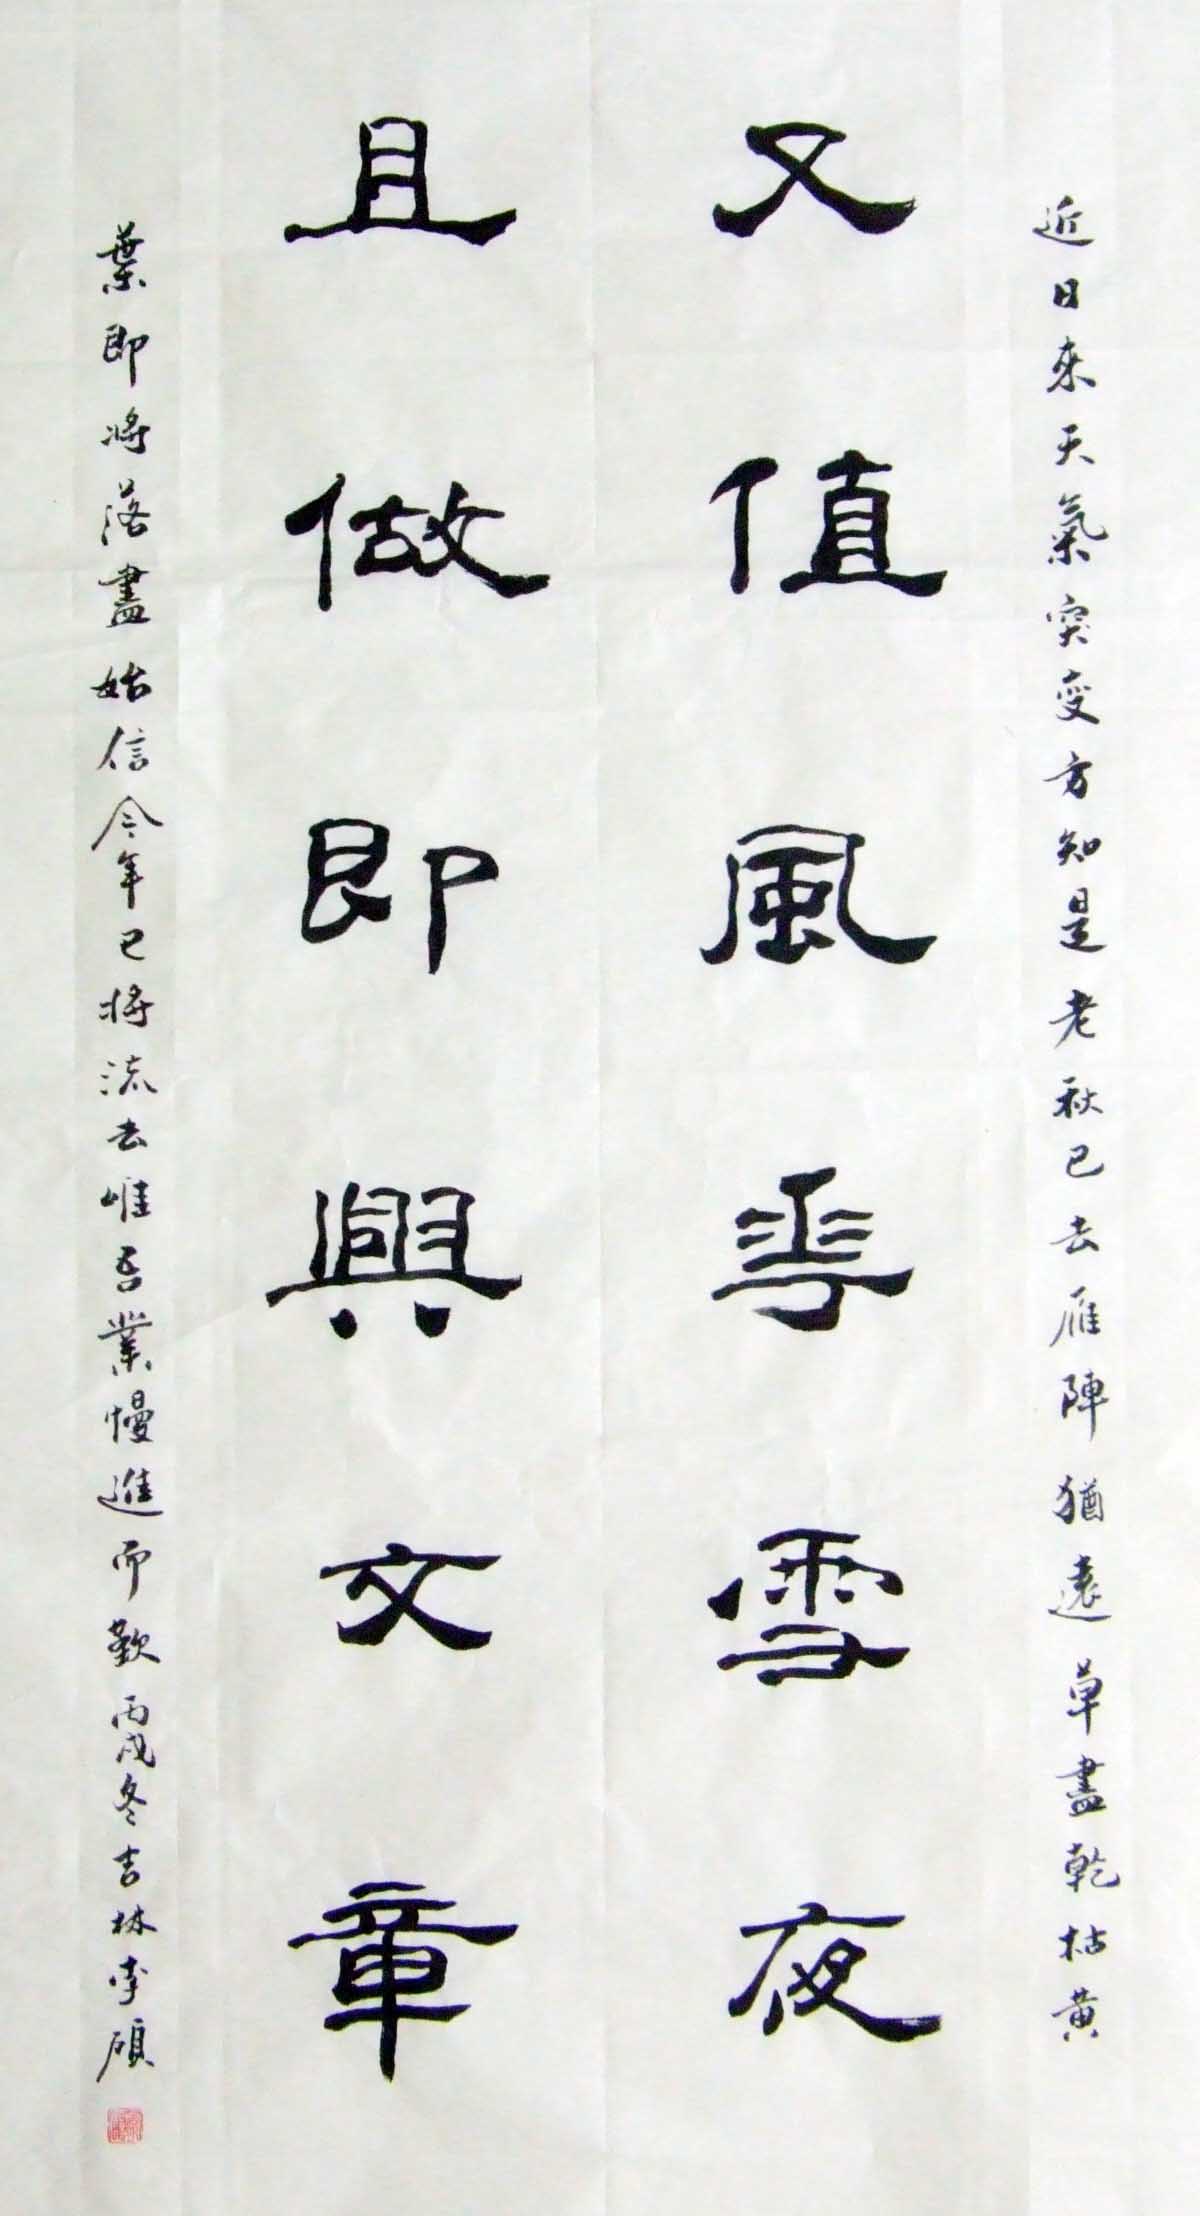 近日來天氣突變方知是老秋已去雁陣猶遠草盡乾枯黄
又值風華雪夜
且做即興文章
葉即將落盡始信今年已將流去惟吾業慢進而歎丙戌冬吉林李碩